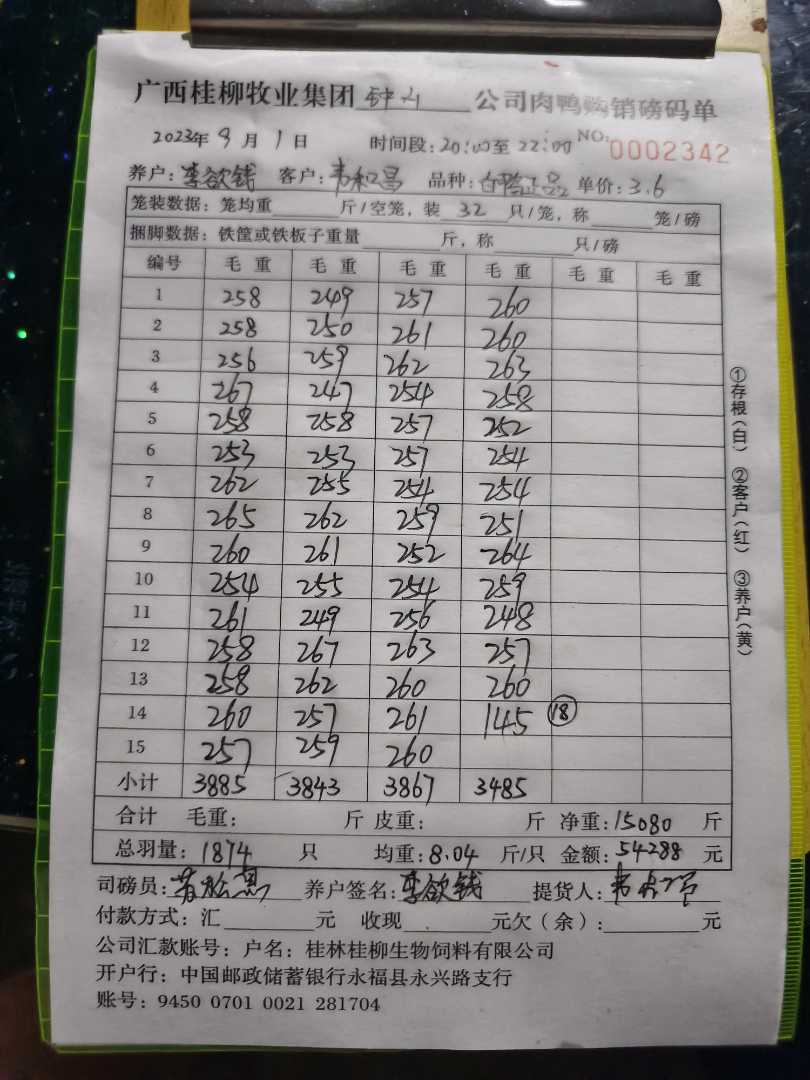 广西桂柳牧业集团 钟山 公司肉鸭购销磅码单
2023年 9月 1日 时间段:20:00至 22:00 NO:0002342
养户:李欲钱 客户:韦和昌 品种:白鸭正品 单价:3.6
笼装数据:笼均重 斤/空笼,装 32 只/笼,称 笼/磅
捆脚数据:铁筐或铁板子重量 斤,称 只/磅
编号 毛 重 毛 重 毛 重 毛 重 毛 重 毛 重
1 258 249 257 260
2 258 250 261 260
3 256 259 262 263
4 267 247 254 258
5 258 258 257 252
6 253 253 257 254
7 262 255 254 254
8 265 262 259 251
9 260 261 252 264
10 254 255 254 259
11 261 249 256 248
12 258 267 263 257
13 258 262 260 260
14 260 257 261 145 18
15 257 259 260
小计 3885 3843 3867 3485
合计 毛重: 斤 皮重: 斤 净重:15080 斤
总羽量:1874 只 均重:8.04 斤/只 金额:54288 元
司磅员: 养户签名:李欲钱 提货人:
付款方式:汇 元 收现 元欠(余): 元
公司汇款账号:户名:桂林桂柳生物饲料有限公司
开户行:中国邮政储蓄银行永福县永兴路支行
账号:9450 0701 0021 281704
①存根(白) ②客户(红) ③养户(黄)